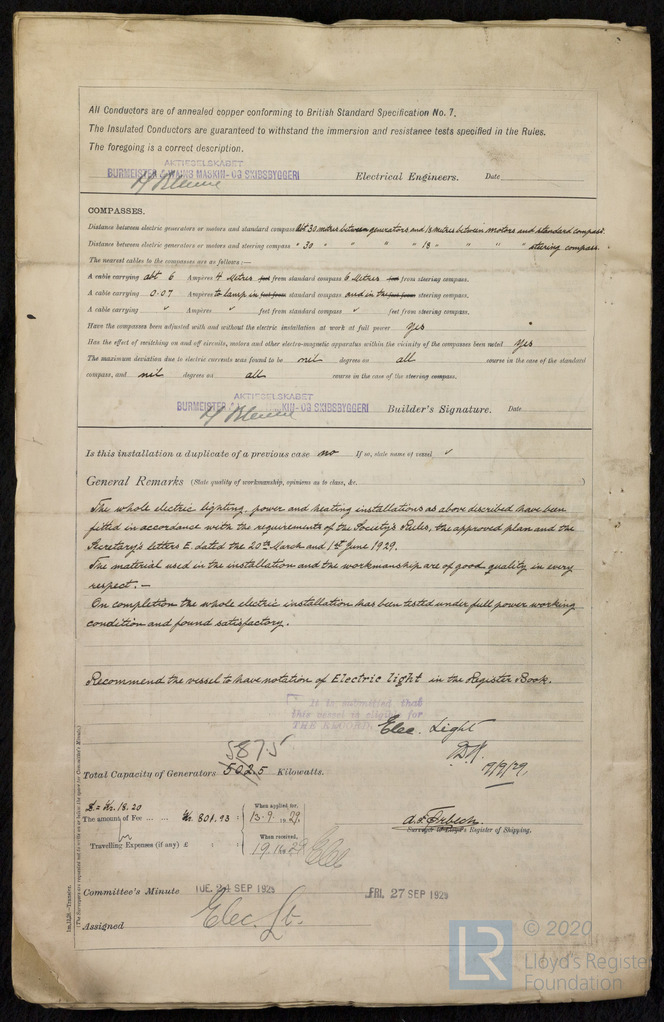 All Conductors are of annealed copper conforming to British Standard Specification No. 7.
The Insulated Conductors are guaranteed to withstand the immersion and resistance tests specified in the Rules.
The foregoing is a correct description.
AKTIESELSKABET
BURMEISTER & WAINS MASKIN- OG SKIBSBYGGERI
Electrical Engineers. Date
COMPASSES.
Distance between electric generators or motors and standard compass abt 30 metres between generators and 18 metres between motors and standard compass.
Distance between electric generators or motors and steering compass " 30 " " " " 18 " " " " steering compass.
The nearest cables to the compasses are as follows:—
A cable carrying abt 6 Ampères 4 Metres feet from standard compass 6 Metres feet from steering compass.
A cable carrying 0.07 Ampères to lamp in feet from standard compass and in the feet from steering compass.
A cable carrying " Ampères " feet from standard compass " feet from steering compass.
Have the compasses been adjusted with and without the electric installation at work at full power yes
Has the effect of switching on and off circuits, motors and other electro-magnetic apparatus within the vicinity of the compasses been noted yes
The maximum deviation due to electric currents was found to be nil degrees on all course in the case of the standard
compass, and nil degrees on all course in the case of the steering compass.
AKTIESELSKABET
BURMEISTER & WAINS MASKIN- OG SKIBSBYGGERI
Builder's Signature. Date
Is this installation a duplicate of a previous case no If so, state name of vessel
General Remarks (State quality of workmanship, opinions as to class, &c. )
The whole electric lighting, power and heating installations as above described have been
fitted in accordance with the requirements of the Society's Rules, the approved plan and the
Secretary's letters E. dated the 20th March and 1st June 1929.
The material used in the installation and the workmanship are of good quality in every
respect. —
On completion the whole electric installation has been tested under full power working
condition and found satisfactory.
Recommend the vessel to have notation of Electric light in the Register Book.
It is submitted that
this vessel is eligible for
THE RECORD. Elec. Light
19/9/29.
587.5
Total Capacity of Generators 502.5 Kilowatts.
£ = Kr. 18.20
The amount of Fee ... ... Kr. 801.93 :
When applied for,
13.9.1929.
When received,
Travelling Expenses (if any) £ : :
Surveyor to Lloyd's Register of Shipping.
Committee's Minute TUE. 24 SEP 1929 FRI. 27 SEP 1929
Assigned Elec. Lt.
(The Surveyors are requested not to write on or below the space for Committee's Minute.)
© 2020
LR
Lloyd's Register
Foundation